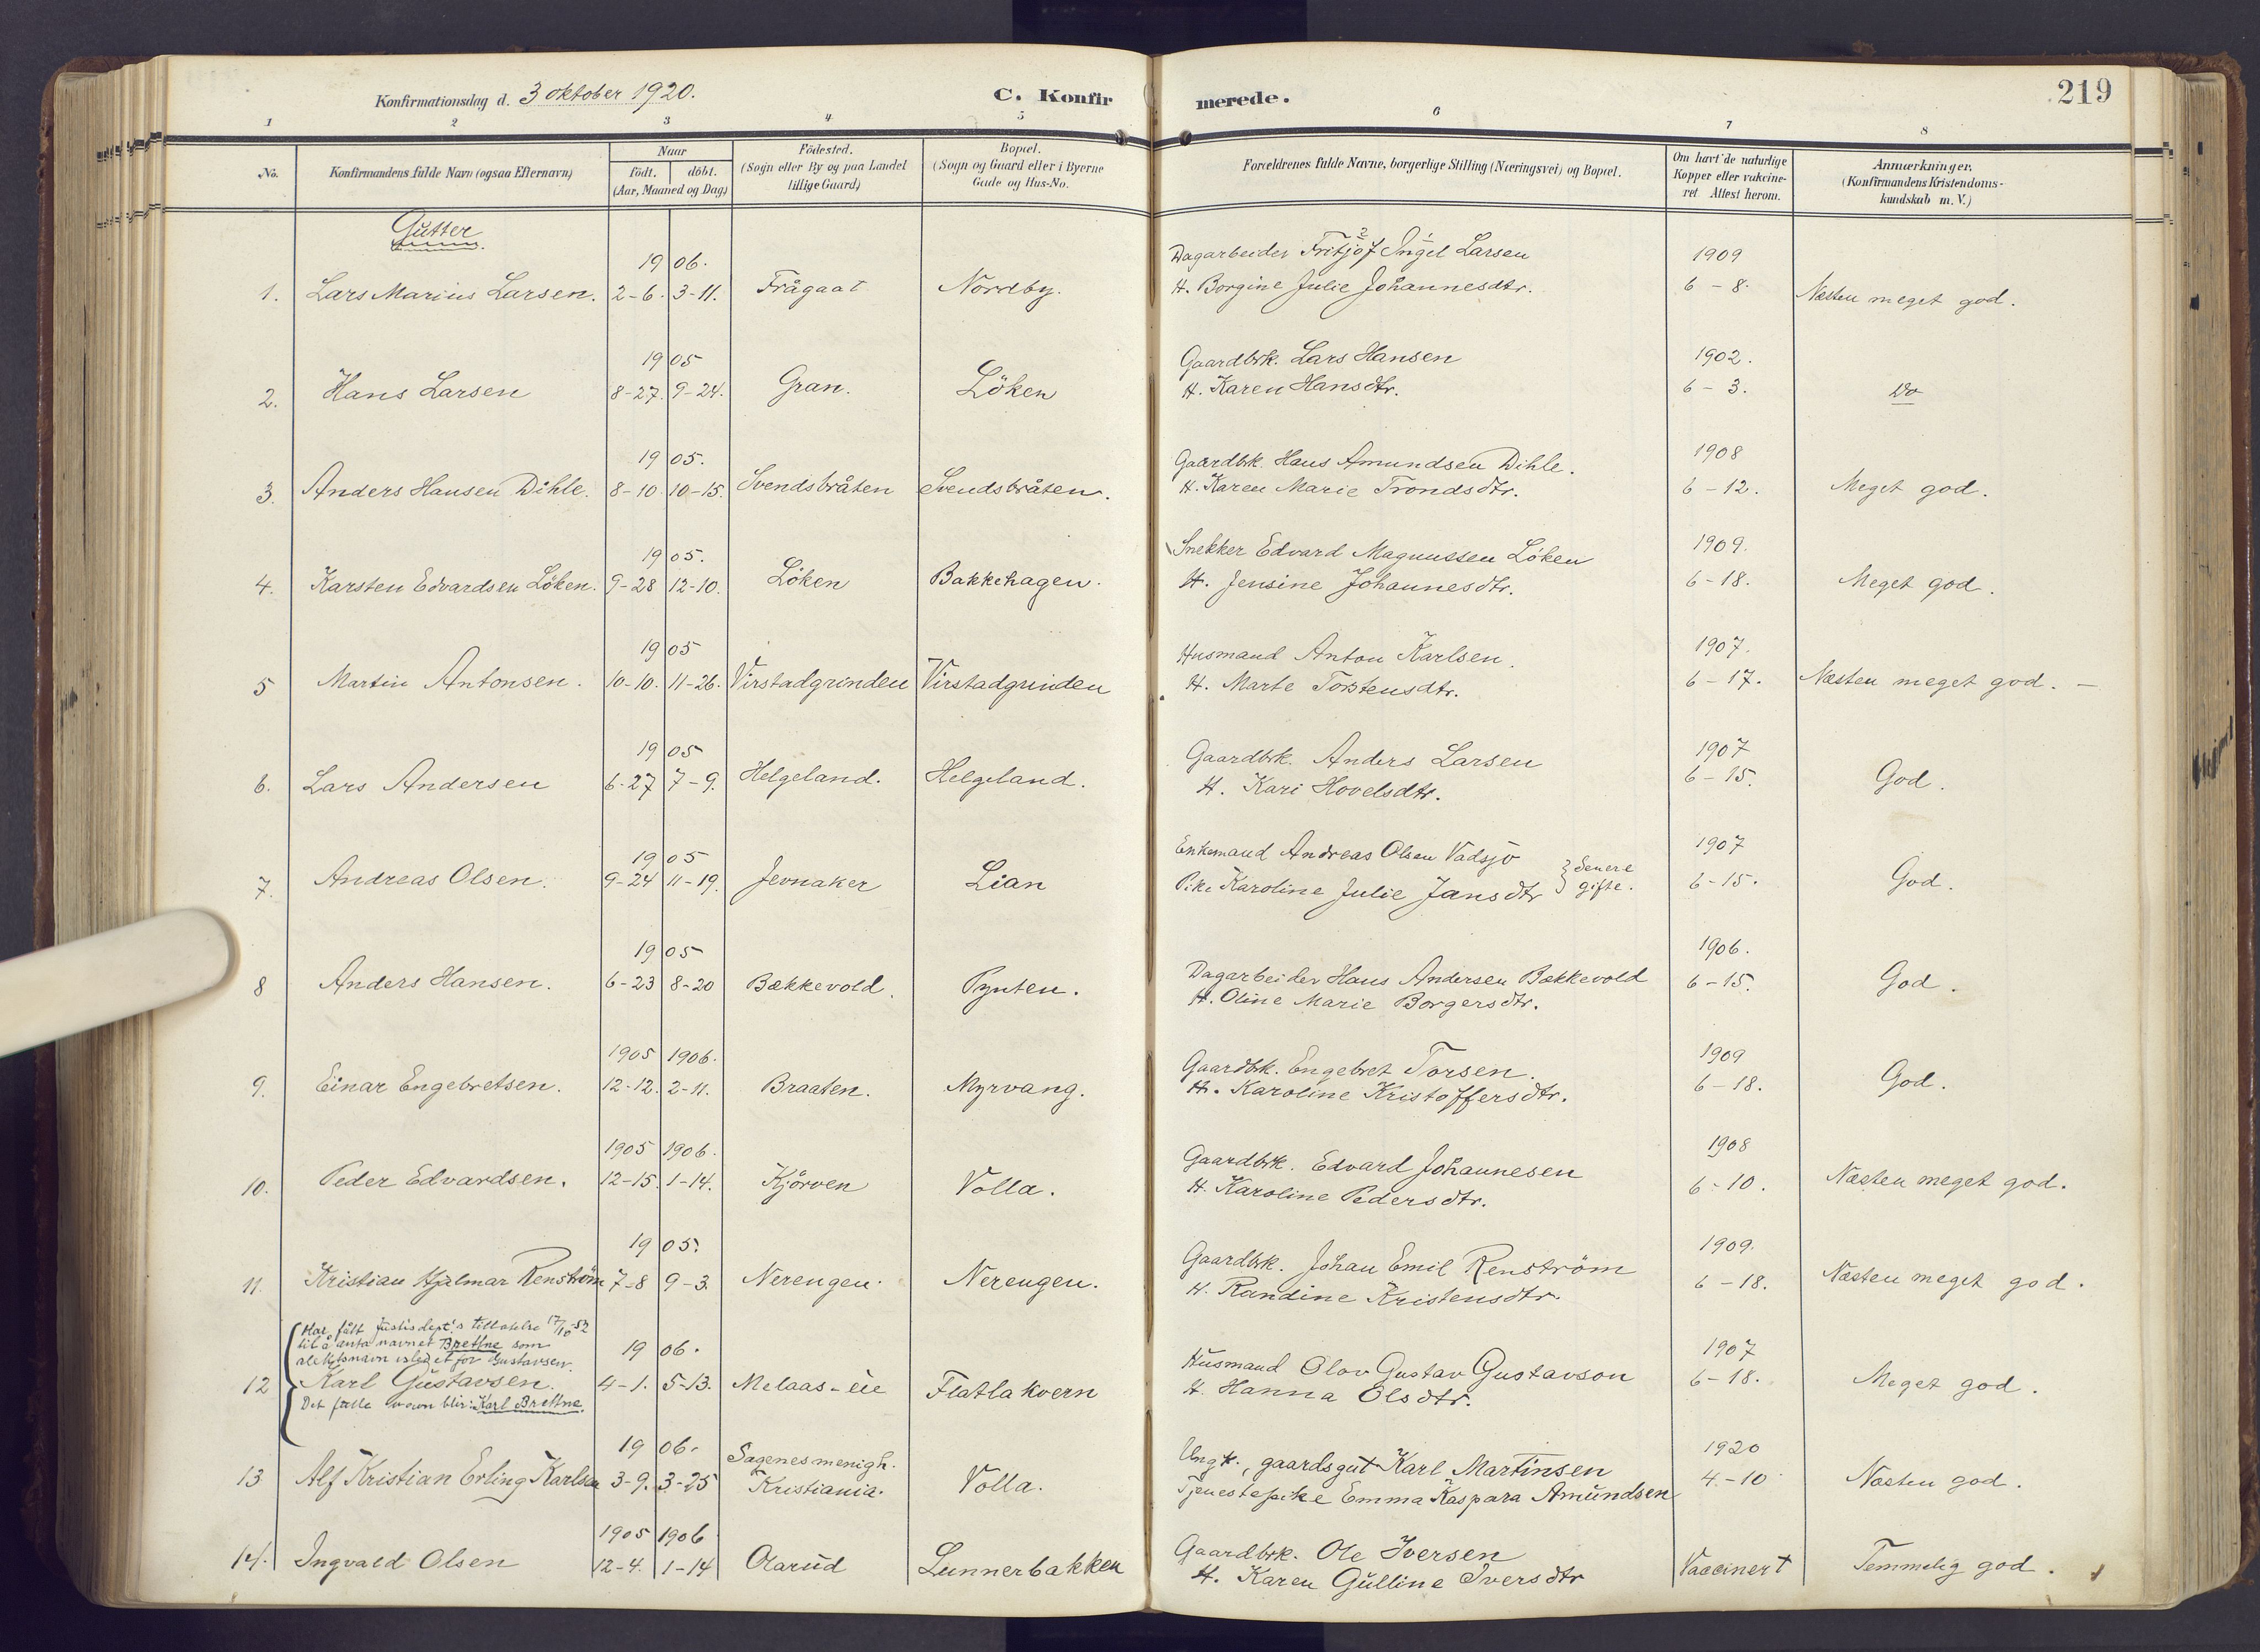 Konfirmationsdag d. 3 oktober 1920. C. Konfirmerede. 219
1 2 3 4 5 6 7 8
No. Konfirmandens fulde Navn (ogsaa Efternavn) Naar födt. döbt. (Aar, Maaned og Dag) Födested. (Sogn eller By og paa Landet tillige Gaard) Bopæl. (Sogn og Gaard eller i Byerne Gade og Hus-No. Forældrenes fulde Navne, borgerlige Stilling (Næringsvei) og Bopæl. Om havt de naturlige Kopper eller vakcineret Attest herom. Anmærkninger. (Konfirmandens Kristendomskundskab m. V.)
Gutter
19 06. Dagarbeider Fritjof Engel Larsen 1909
1. Lars Marius Larsen. 2-6. 3-11. Frågaat Nordby. H. Borgine Julie Johannesdtr. 6-8. Næsten meget god.
19 05 Gaardbrk. Lars Hansen 1902.
2. Hans Larsen 8-27. 9-24. Gran. Löken H. Karen Hansdtr. 6-3. Do
19 05. Gaardbrk. Hans Amundsen Dihle. 1908
3. Anders Hansen Dihle. 8-10 10-15. Svendsbråten Svendsbråten. H. Karen Marie Trondsdtr. 6-12. Meget god.
19 05. Snekker Edvard Magnussen Löken 1909.
4. Karsten Edvardsen Löken. 9-28 12-10. Löken Bakkehagen. H. Jensine Johannesdtr. 6-18. Meget god.
19 05 Husmand Anton Karlsen. 1907.
5 Martin Antonsen. 10-10. 11-26. Virstadgrinden Virstadgrinden H. Marte Torstensdtr. 6-17. Næsten meget god. -
19 05 Gaardbrk. Anders Larsen 1907
6. Lars Andersen 6-27 7-9. Helgeland. Helgeland. H. Kari Hovelsdtr. 6-15. God.
19 05 Enkemand Andreas Olsen Vadsjö } senere 1907
7. Andreas Olsen. 9-24 11-19. Jevnaker Lian Pike Karoline Julie Jansdtr gifte. 6-15. God.
19 05 Dagarbeider Hans Andersen Bækkevold 1906.
8 Anders Hansen. 6-23 8-20 Bækkevold. Pynten. H. Oline Marie Borgersdtr. 6-15. God.
1905 1906. Gaardbk. Engebret Torsen. 1909
9. Einar Engebretsen. 12-12. 2-11. Braaten. Myrvang. H. Karoline Kristoffersdtr. 6-18. God.
1905 1906. Gaardbrk. Edvard Johannesen 1908
10. Peder Edvardsen. 12-15. 1-14. Kjörven Volla. H. Karoline Pedersdtr. 6-10. Næsten meget god.
19 05. Gaardbrk. Johan Emil Renström 1909.
11. Kristian Hjalmar Renström 7-8 9-3. Nerengen. Nerengen. H. Randine Kristensdtr. 6-18. Næsten meget god.
Har fått Justisdept.'s tillatelse 17/10-52
til å anta navnet Brettne som
slektsnavn istedet for Gustavsen.
19 06. Husmand Olov Gustav Gustavson 1907
12 Karl Gustavsen. 4-1. 5-13. Melaas-eie Flatla kvern H. Hanna Olsdtr. 6-18. Meget god.
Det fulle navn blir: Karl Brettne.
19 06. Sagenes menigh. Ungk., gaardsgut Karl Martinsen 1920
13 Alf Kristian Erling Karlsen 3-9. 3-25 Kristiania. Volla. Tjenestepike Emma Kaspara Amundsen 4-10 Næsten god.
1905 1906 Gaardbrk. Ole Iversen
14. Ingvald Olsen 12-4. 1-14 Olarud Lunnerbakken H. Karen Gulline Iversdtr Vaccinert Temmelig god.